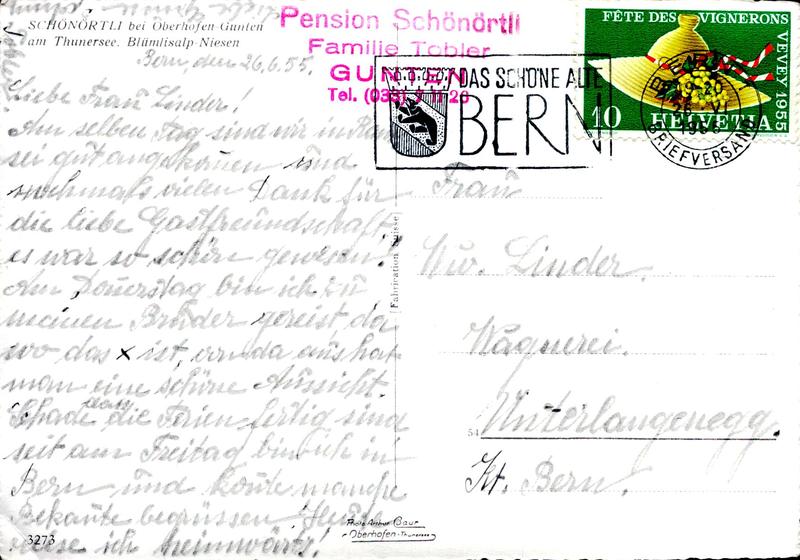 SCHÖNÖRTLI bei Oberhofen-Gunten
am Thunersee. Blümlisalp-Niesen
Pension Schönörtli
Familie Tobler
GUNTEN
Tel. (033)
DAS SCHÖNE ALTE
BERN
FÊTE DES VIGNERONS
VEVEY 1955
10 HELVETIA
BRIEFVERSAND
Bern den 26.6.55.
Liebe Frau Linder.
Am selben Tag sind wir in
gut angekommen und
nochmals vielen Dank für
die liebe Gastfreundschaft
es war so schön gewesen!
Am Donerstag bin ich zu
meinen Bruder gereist da
wo das x ist, von da aus hat
man eine schöne Aussicht.
Schade dass die Ferien fertig sind
seit am Freitag bin ich in
Bern und konte manche
Bekante begrüssen Heute
reise ich heimwärts!
Frau
Ww. Linder.
Wagnerei.
Unterlangenegg.
Kt. Bern.
Fabrication Suisse
54
3273
Photo Arthur Baur
Oberhofen-Thunersee